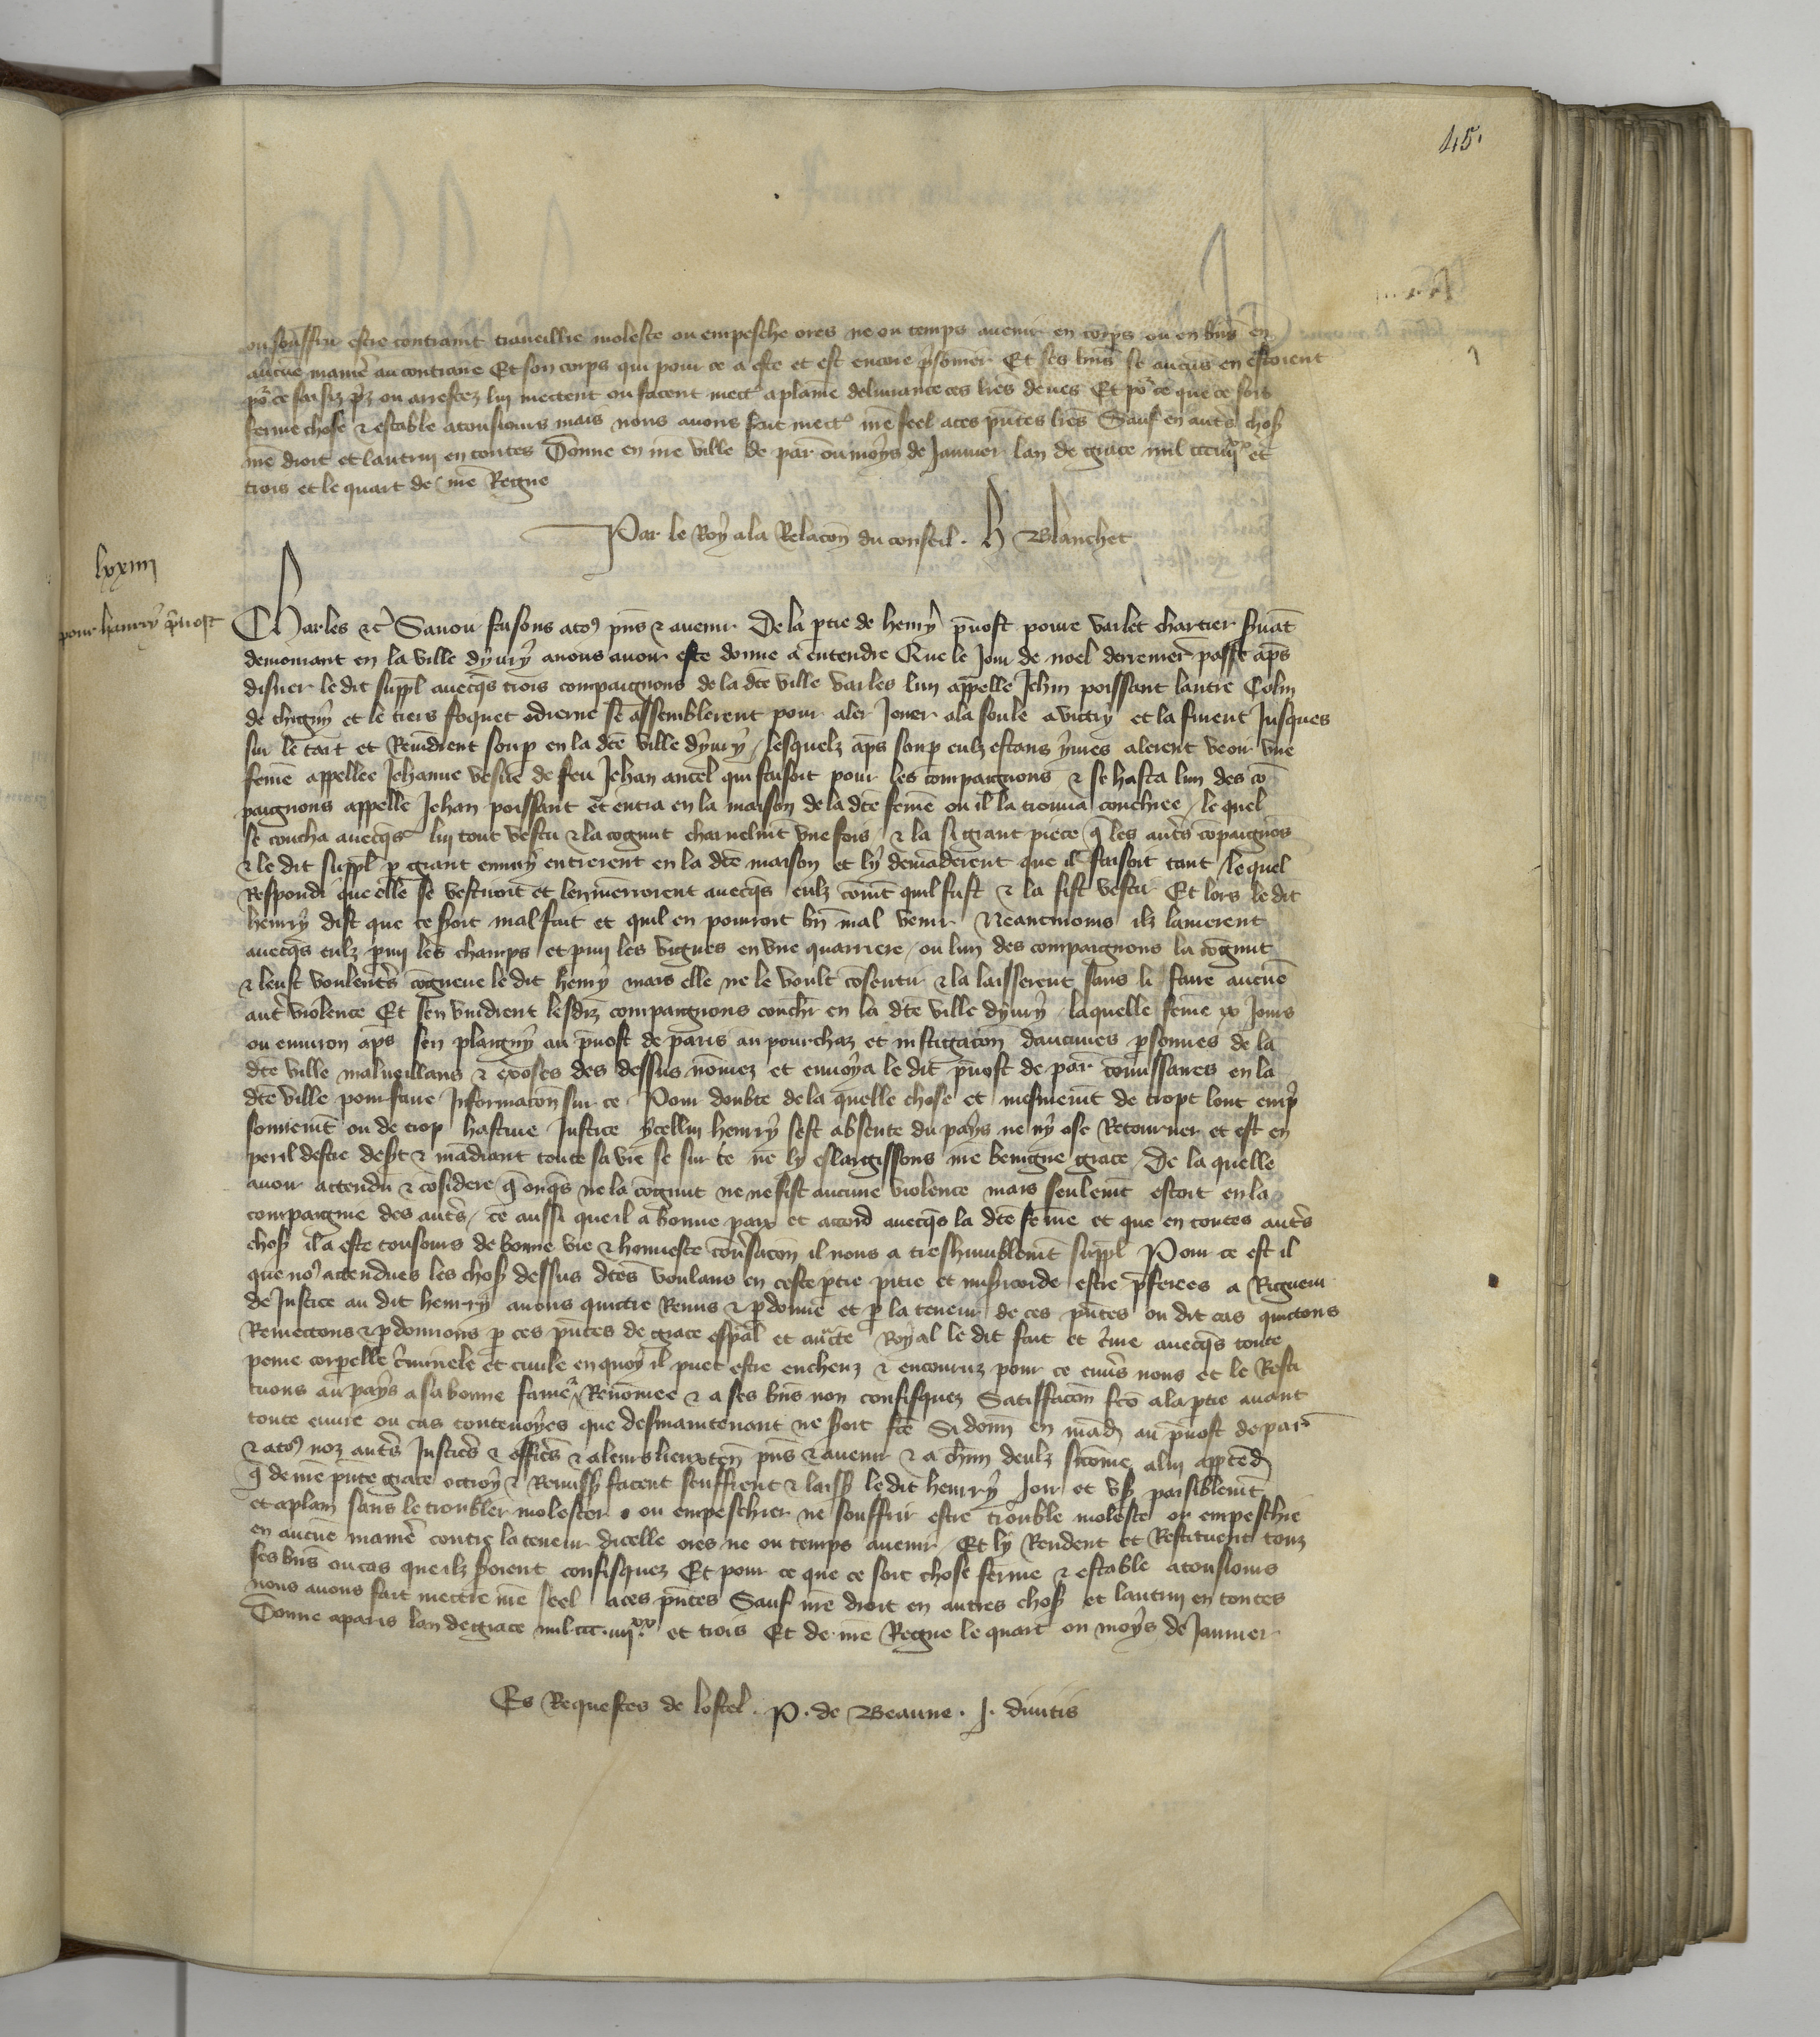 45.
ou souffrir estre contraint traveillie moleste ou empeschie ores ne ou temps avenir en corps ou en bn̄s en
aucūe manier̄ au contraire Et son corps qui pour ce a este et est encore p̄sonnier Et ses biēs se aucūs en estoient
po͛ ce saisiz p̄z ou arrestez lui mettent ou facent mectr̄ a plaine deliurance ces lr̄es veues Et po͛ ce que ce soit
ferme chose & estable a tousiours mais nous auons fait mectr̄ nr̄e seel a ces pn̄tes lr̄es Sauf en autr̄s chos̄
nr̄e droit et lautruy en toutes Donne en nr̄e ville de par̄ ou moys de Januier lan de grace mil cccIIIIxx et
trois et le quart de nr̄e Regne
Par le Roy a la Relacōn du conseil . H Blanchet
lxxiiii
pour henry p̄uost
Charles &c̄ Sauoir faisons a to9 pn̄s & auenir De la ptie de henry p̄uost poure varlet chartier s̄uāt
demourant en la ville dyury a nous auoir este donne a entendre Que le jour de noel derrenier̄ passe ap̄s
disner le dit suppl̄ auecqs̄ trois compaignons de la dcē ville varles lun appelle Jehin poissant lautre Colin
de chigny et le tiers foquet odierne se assemblerent pour aler Jouer a la soule a victry et la furent Jusques
sur le tart et Reuīdrent soup en la dcē ville dyury / lesquelz ap̄s soup eulz estans yures alerent veoir vne
femē appellee Jehanne vesue de feu Jehan ancel qui faisoit pour les compaignons & se hasta lun des cō
paignons appelle Jehan poissant et entra en la maison de la dcē femē ou il la trouua couchiee / le quel
se coucha auecqs̄ lui tout vestu & la cognut charnelmt̄ vne fois / & la si grant piece q̄ les autr̄s cōpaignōs
& le dit suppl̄ p grant ennuy entrerent en la dcē maison et ly demāderent que il faisoit tant / le quel
Respondi que elle se vestiroit et lenmenroient auecqs̄ eulz comt̄ quil fust & la fist vestir Et lors le dit
henry dist que ce s̄oit mal fait et quil en pourroit bn̄ mal venir Neantmoins ilz lamenerent
auecqs̄ eulz pmi les champs et pmi les vignes en vne quarriere / ou lun des compaignons la cognut
& leust voulentr̄s cogneue le dit henry mais elle ne le voult cōsentir & la laisserent sans li faire aucūe
autr̄ violence Et sen vindrent lesdiz compaignons couchr̄ en la dcē ville dyury / laquelle femē xv Jours
ou enuiron ap̄s sen plaigny au p̄uost de paris au pourchaz et instigacōn daucunes psonnes de la
dcē ville malueillans & exoses des dessus nōmez et enuoya le dit p̄uost de par̄ cōmissaires en la
dcē ville pour faire Informacōn sur ce Pour doubte de la quelle chose et mesmemt̄ de tropt lont emp̄
sonnemt̄ ou de trop hastiue Justice ycellui henry sest absente du pays ne ny ose Retourner et est en
peril destre desert & mādiant toute sa vie se sur ce ne ly eslargissons nr̄e benigne grace / De la quelle
auoir attendu & cōsidere q̄ onqs̄ ne la cognut ne ne fist aucune violence mais seulemt̄ estoit en la
compaignie des autr̄s / ce aussi que il a bonne paix et accord auecqs̄ la dcē femē et que en toutes autr̄s
chos̄ il a este tousiours de bonne vie & honneste cōuersacōn il nous a treshumblemt̄ suppl̄ Pour ce est il
que no9 attendues les chos̄ dessus dcēs voulans en ceste ptie pitie et misicorde estre p̄ferees a Rigueur
de Justice au dit henry auons quictie Remis & pdonne et p la teneur de ces pn̄tes ou dit cas quictons
Remettons & pdonnons p ces pn̄tes de grace espāl et auctē Royal le dit fait et cr̄me auecqs̄ toute
peine corpelle cr̄minele et ciuile en quoy il puet estre encheuz & encouruz pour ce enuers nous et le Resti
tuons au pays a sa bonne fame & Renōmee & a ses bn̄s non confisquez Satisfacōn fcē a la ptie auant
toute euure ou cas contenoyes que desmaintenant ne soit fcē Si donn̄ en mād au p̄uost de par̄
& a to9 noz autr̄s Justicr̄s & officr̄s & a leurs lieuxten̄ pn̄s & auenir & a chūn deulz sicōme a lui apptēd
q̄ de nr̄e pn̄te grace octroy & Remiss̄ facent seuffrent & laiss̄ le dit henry Joir et vs̄ paisiblemt̄
et a plain sans le troubler molester ou empeschier ne souffrir estre trouble moleste ou empeschie
en aucūe manier̄ contre la teneur dicelle ores ne ou temps auenir Et ly Rendent et Restituent touz
ses bn̄s ou cas que ilz s̄oient confisquez Et pour ce que ce soit chose ferme & estable a tousiours
nous auons fait mettre nr̄e seel a ces pn̄tes Sauf nr̄e droit en autres chos̄ et lautruy en toutes
Donne a paris lan de grace mil ccc.IIIIxx et trois Et de nr̄e Regne le quart ou moys de Januier
Es Requestes de lostel . P. de Beaune . J. diuitis